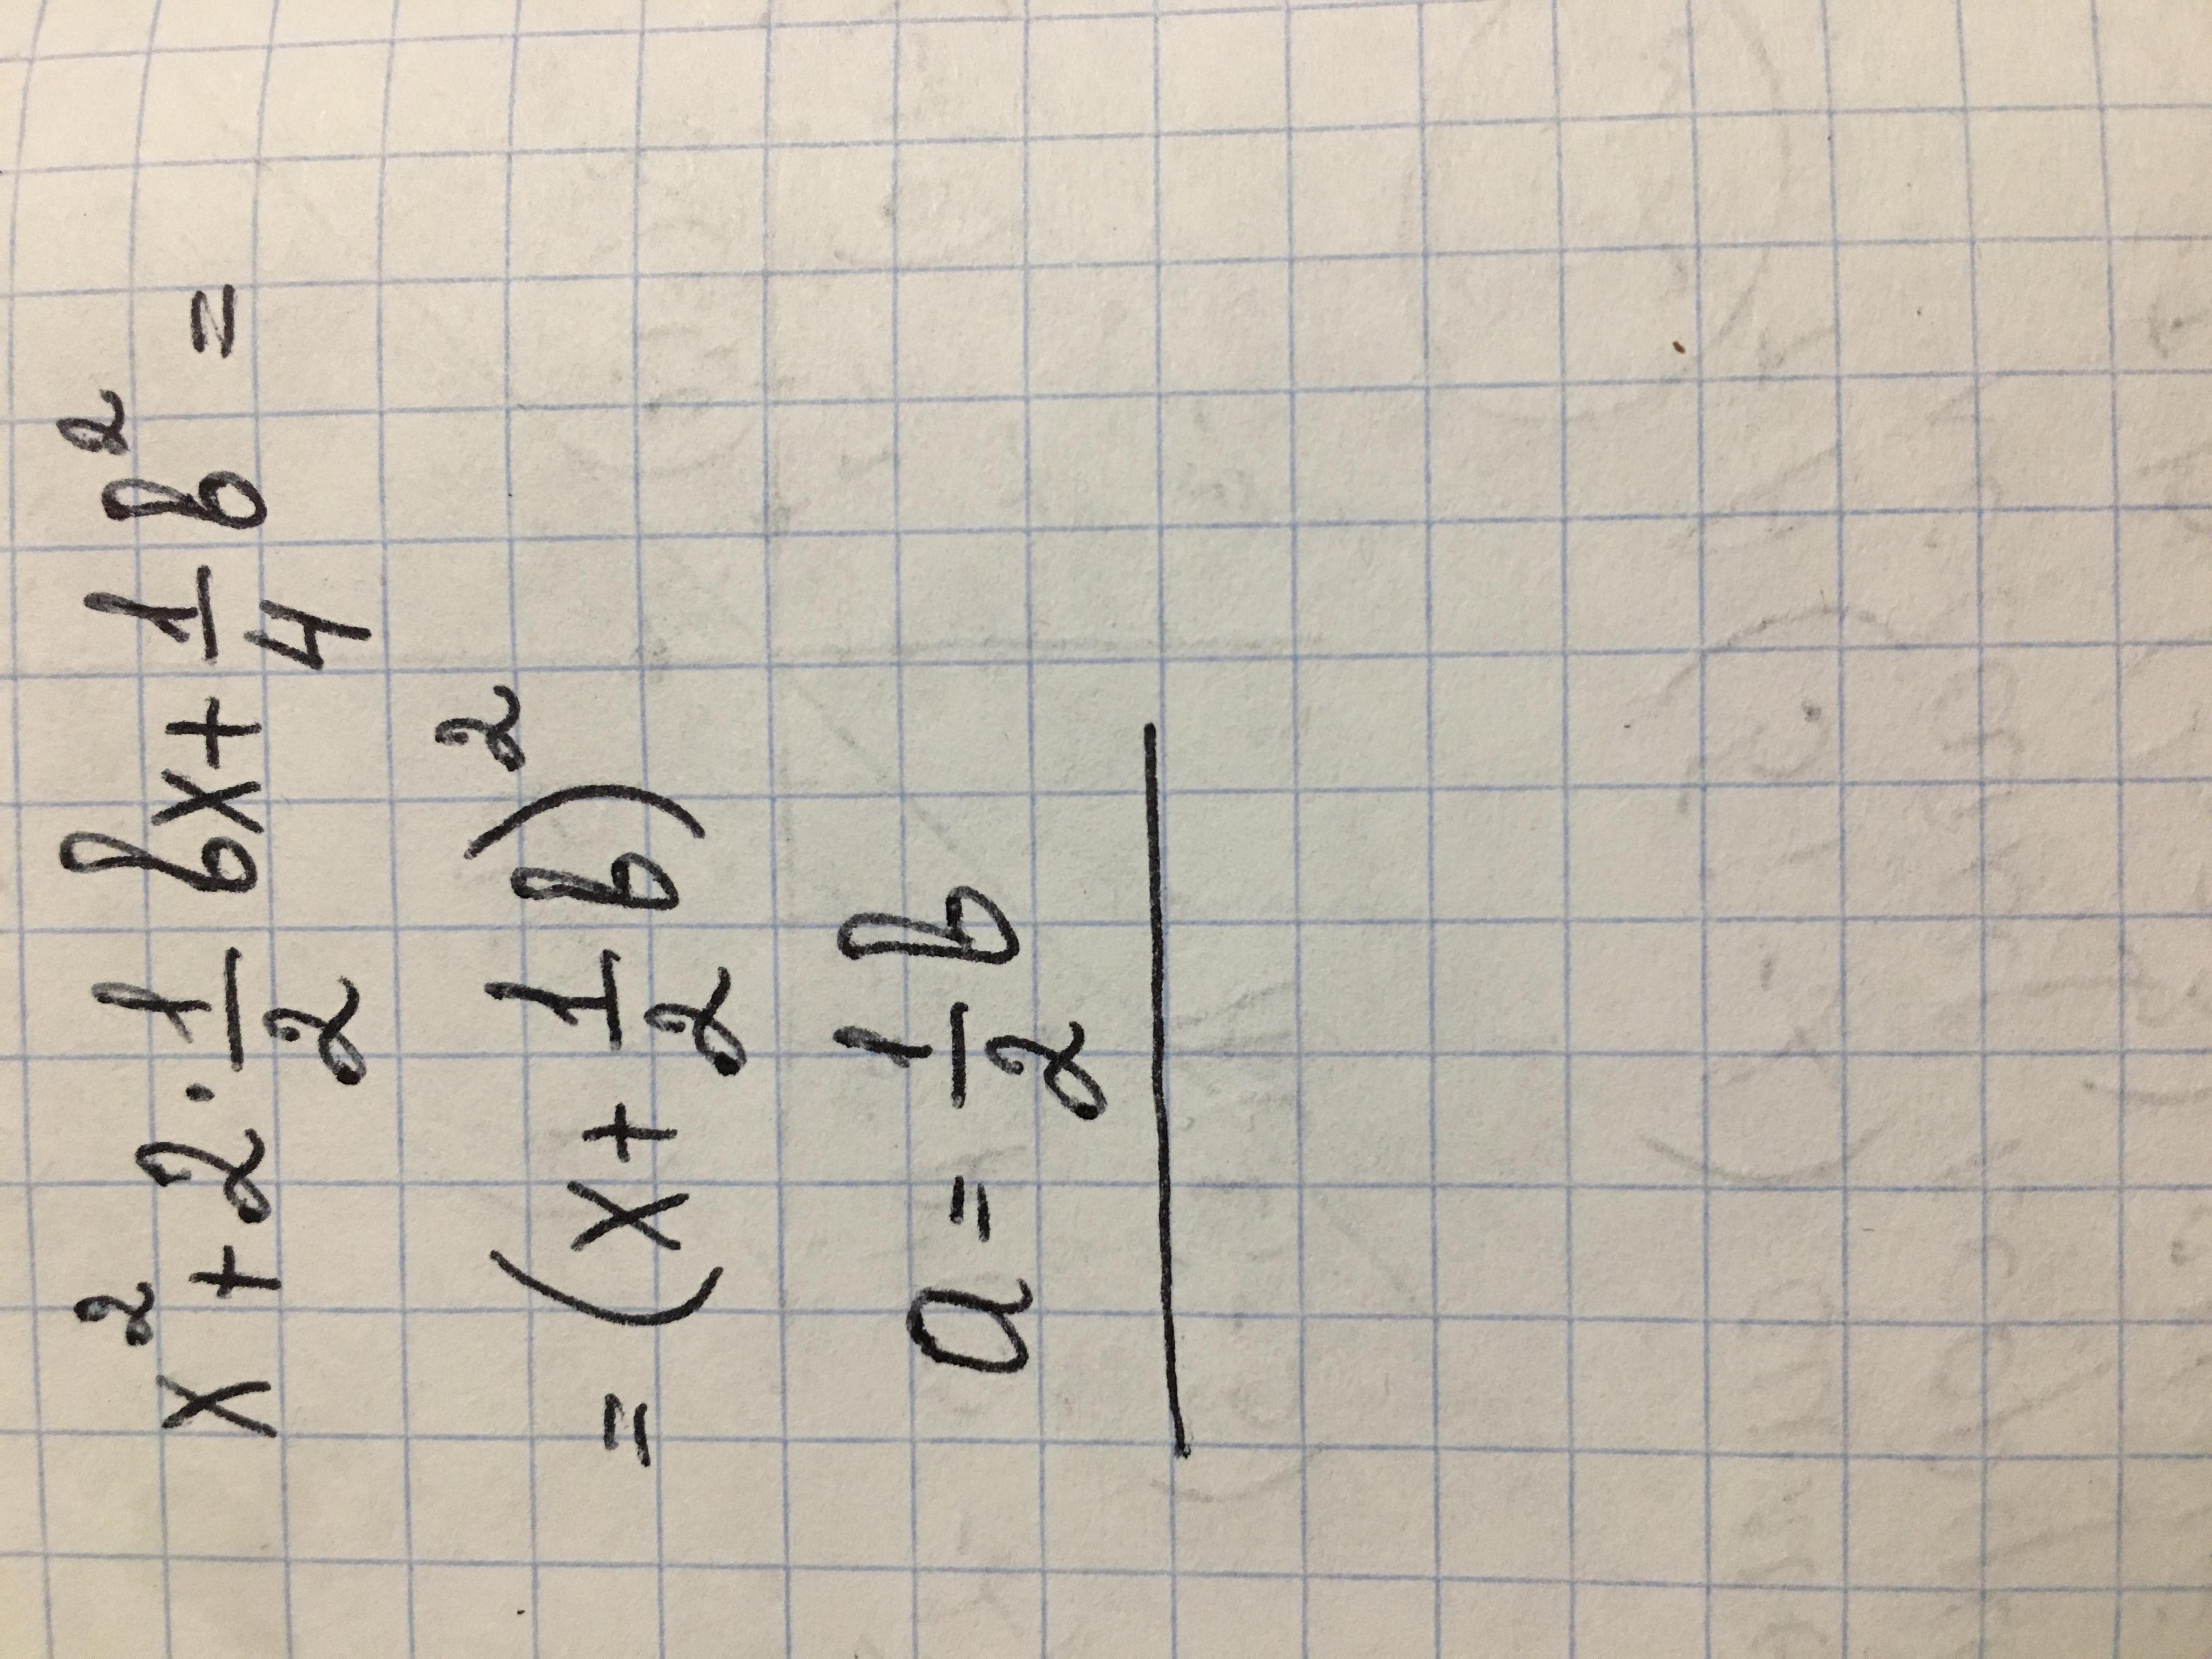 x² + 2 · 1/2 bx + 1/4 b² =
= (x + 1/2 b)²
a = 1/2 b